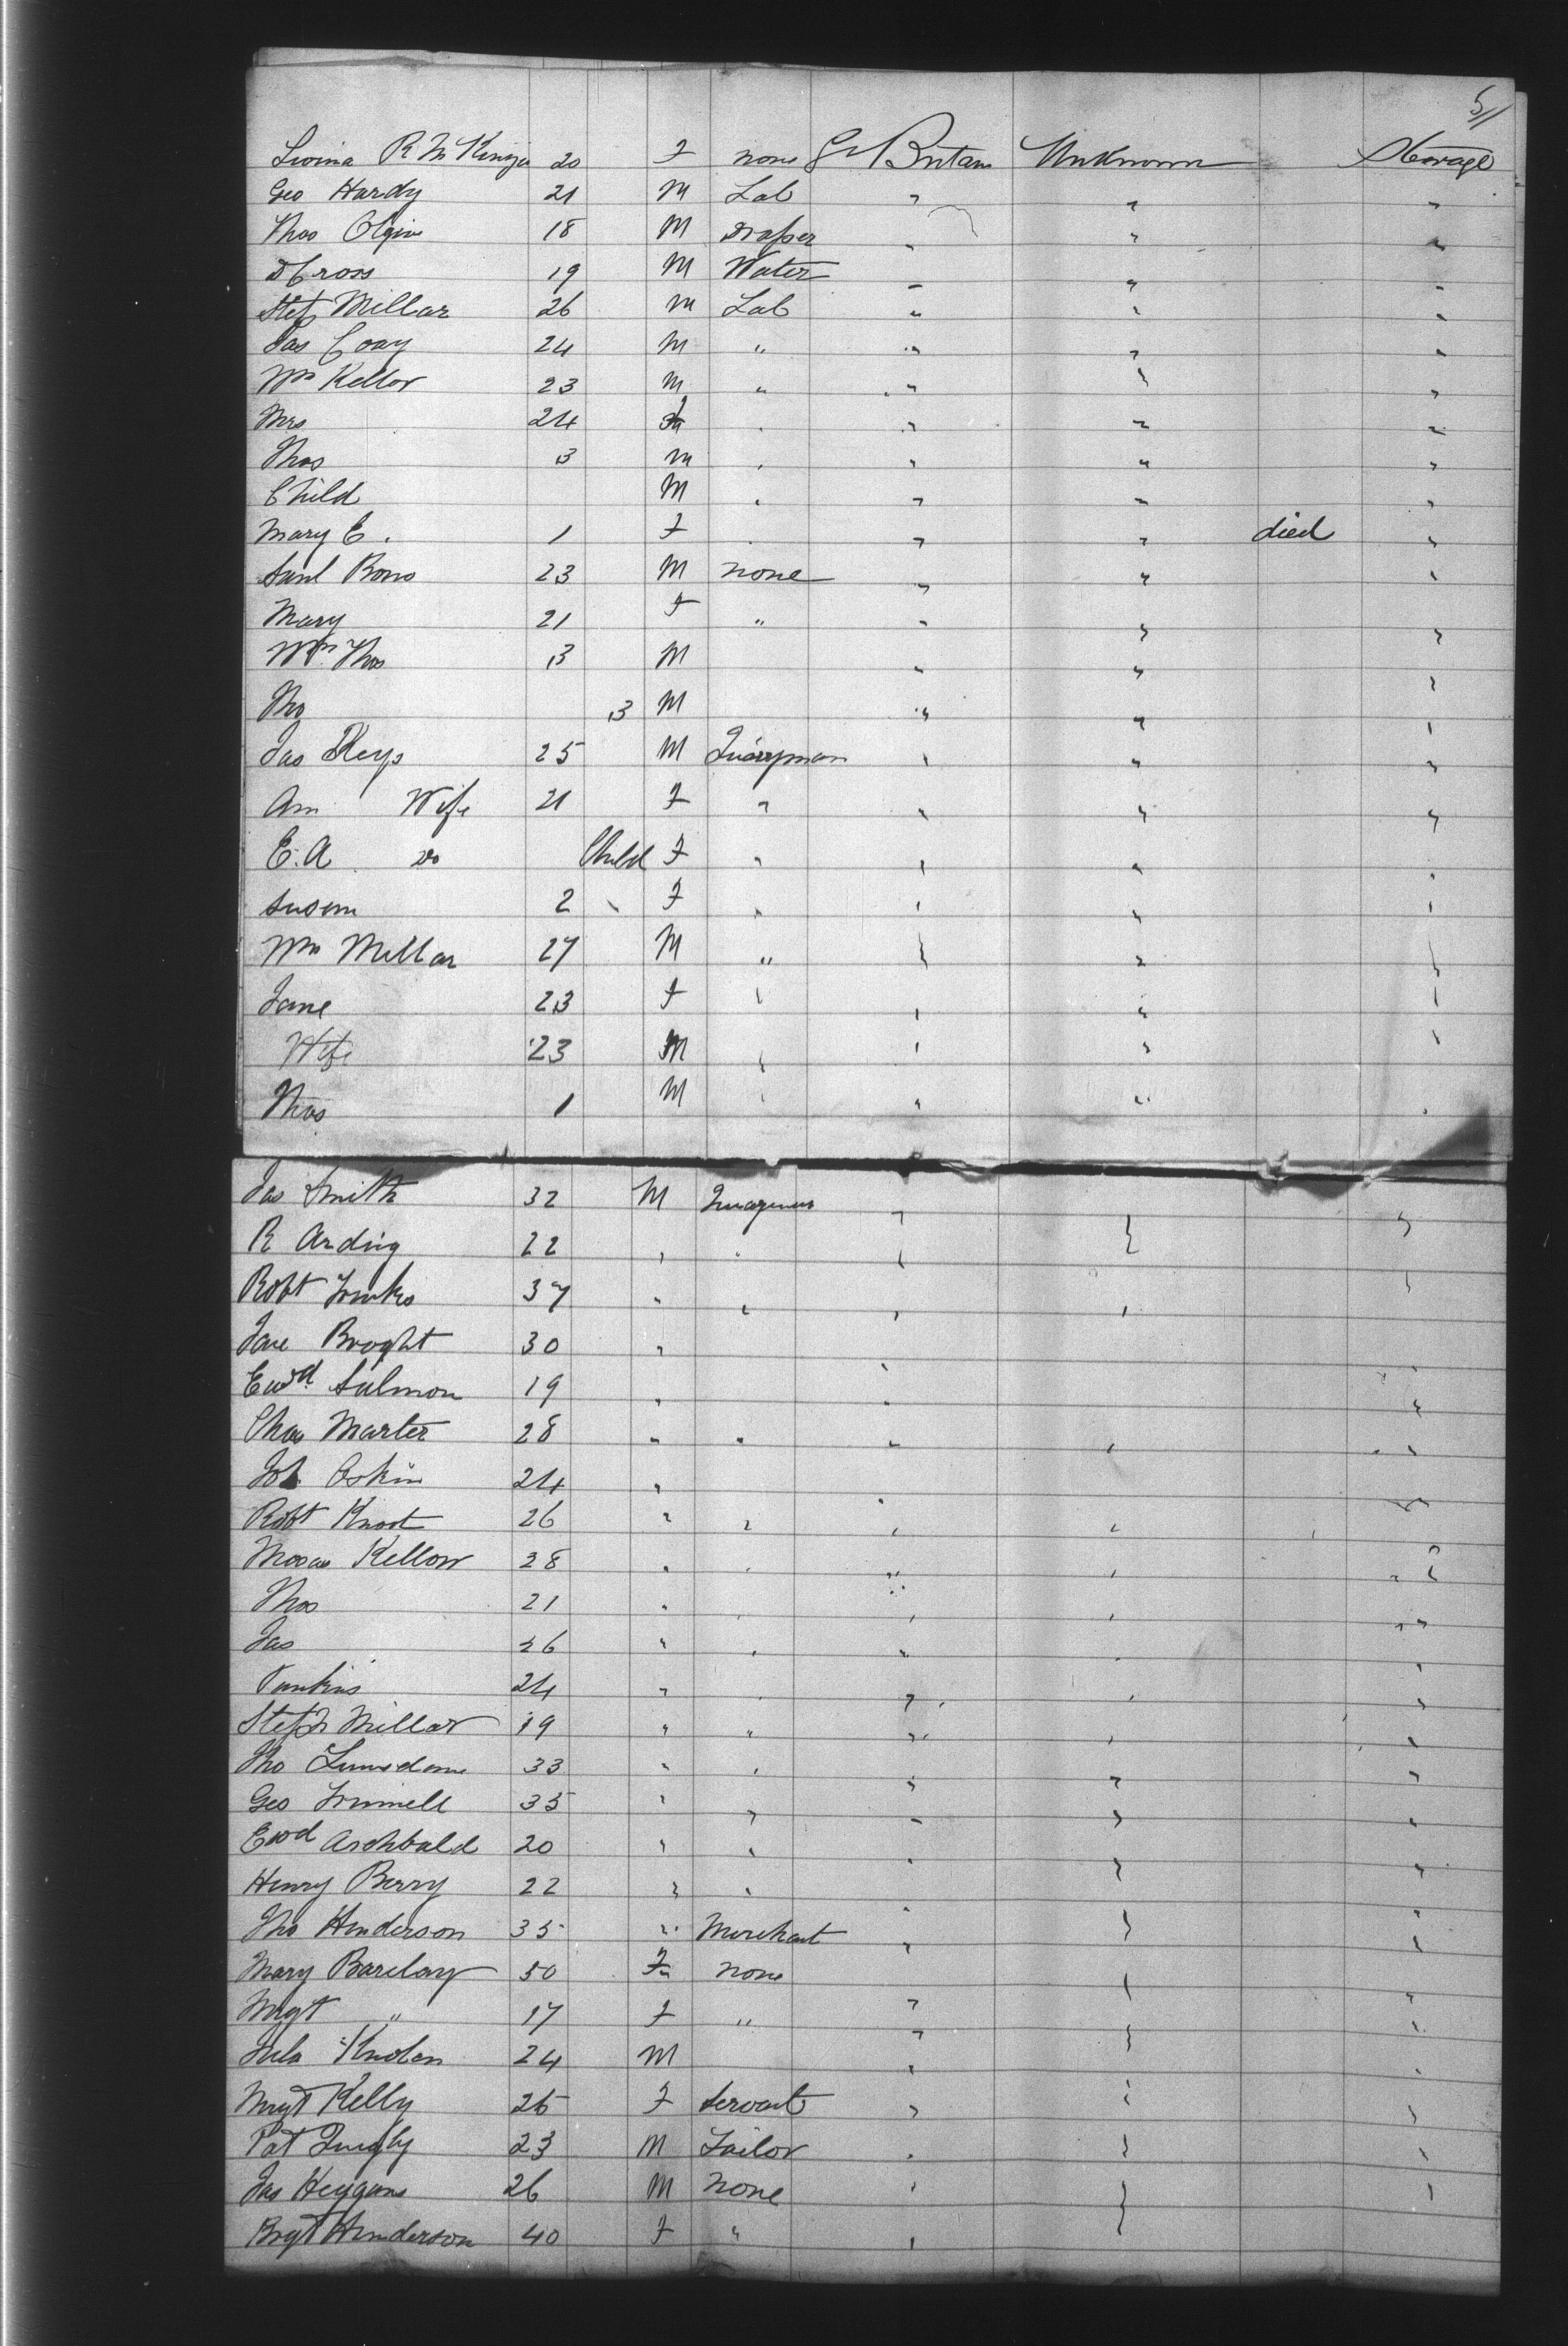 51
R McKenzie 20 F none Gr Britain Unknown Steerage
Geo Hardy 21 M Lab " " "
Thos 18 M Draper " " "
D Cross 19 M Water " " "
Step Millar 26 M Lab " " "
Jas Coay 24 M " " " "
Wm Kellor 23 M " " " "
Mrs 24 F " " " "
Thos 3 M " " " "
Child M " " " "
Mary E. 1 F " " " died "
Saml 23 M none " " "
Mary 21 F " " " "
Wm Thos 3 M " " "
Tho 3 M " " "
Jas Keys 25 M Quarryman " " "
Ann Wife 21 F " " " "
E. A do Child F " " " "
Susem 2 " F " " " "
Wm Millar 27 M " " " "
Jane 23 F " " " "
Wife 23 M " " " "
Thos 1 M " " " "
Jas Smith 32 M " " "
R Arding 22 " " " " "
Robt 37 " " " " "
Jane Broght 30 " "
Ewd Salmon 19 " " "
Chas Marter 28 " " " " "
Askin 24 " " "
Robt Knott 26 " " " " "
Moses Kellow 28 " " " " "
Thos 21 " " " " "
Jas 26 " " " " "
24 " " " " "
Steph Millar 19 " " " " "
Tho Lumsdom 33 " " " " "
Geo 35 " " " " "
Ewd Archbald 20 " " " " "
Henry Berry 22 " " " " "
Tho Henderson 35 " Merchant " " "
Mary Barclay 50 F none " " "
Mrgt " 17 F " " " "
24 M " " "
Mrgt Kelly 25 F Servant " " "
Pat 23 M Tailor " " "
Jas Heygans 26 M none " " "
Brgt Henderson 40 F " "